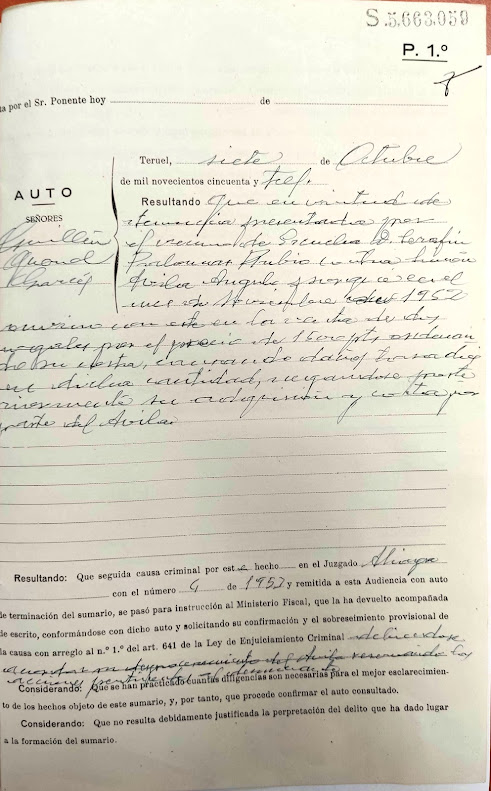 S.5.663.059
P. 1.º
ta por el Sr. Ponente hoy de
Teruel, siete de Octubre
de mil novecientos cincuenta y tres.
AUTO
SEÑORES
Guillén
Garcés
Resultando Que en virtud de
denuncia presentada por
el vecino de Escucha D. Serafín
Rubio contra
Avila Angulo porque en el
mes de Noviembre de 1952
convino con este en la venta de dos
por el precio de 1500 pts
de su cuenta, causando daños
en dicha cantidad, negandose
su adquisicion y
parte del Avila.
Resultando: Que seguida causa criminal por este hecho en el Juzgado Aliaga
con el número 4 de 1953 y remitida a esta Audiencia con auto
de terminación del sumario, se pasó para instrucción al Ministerio Fiscal, que la ha devuelto acompañada
de escrito, conformándose con dicho auto y solicitando su confirmación y el sobreseimiento provisional de
la causa con arreglo al n.º 1.º del art. 641 de la Ley de Enjuiciamiento Criminal
del Avila reservando las
acciones
Considerando: Que se han practicado cuantas diligencias son necesarias para el mejor esclarecimien-
to de los hechos objeto de este sumario, y, por tanto, que procede confirmar el auto consultado.
Considerando: Que no resulta debidamente justificada la perpretación del delito que ha dado lugar
a la formación del sumario.